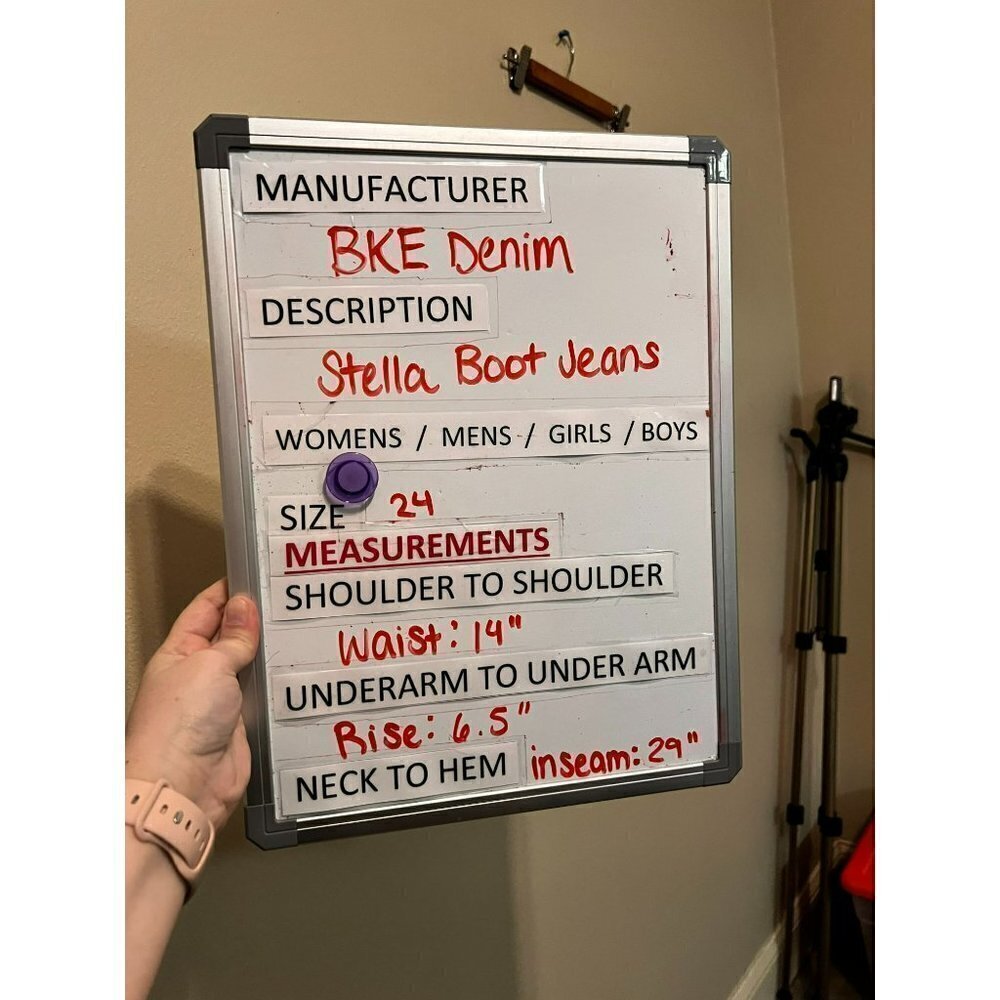 MANUFACTURER
BKE Denim
DESCRIPTION
Stella Boot Jeans
WOMENS / MENS / GIRLS / BOYS
SIZE 24
MEASUREMENTS
SHOULDER TO SHOULDER
Waist: 14"
UNDERARM TO UNDER ARM
Rise: 6.5"
NECK TO HEM inseam: 29"